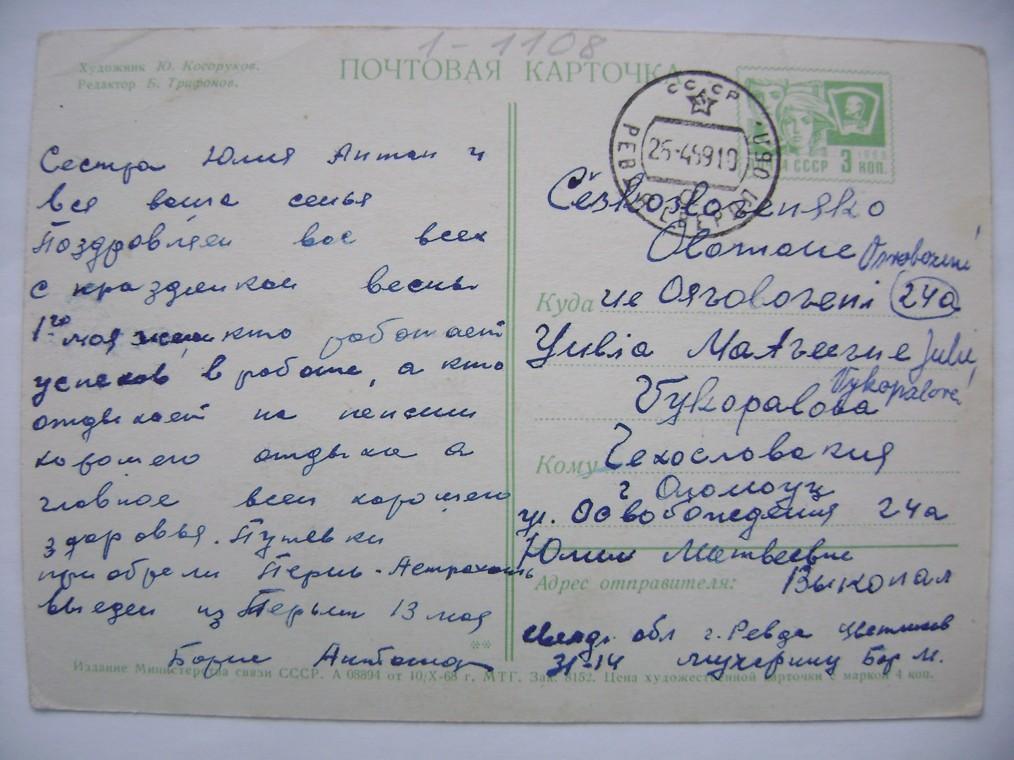 1-1108
Художник Ю. Косоруков.
Редактор Б. Трифонов.
ПОЧТОВАЯ КАРТОЧКА
СССР
26-4 69 10
РЕВДА СВЕРДЛ. ОБЛ.
СССР 3 КОП.
Сестра Юлия Антон и
вся ваша семья
Поздровляем вас всех
с праздником весны
1го мая кто работает
успехов в работе, а кто
отдыхает на пенсии
хорошего отдыха а
главное всем хорошего
здоровья. Путевки
приобрели Пермь-Астрахань
выедем из Перьми 13 мая
Борис Антонид
Československo
Olomouc
Куда
24a
Julii,
Vykopalové
Кому Чехословакия
г Оломоуц
ул. Освобождения 24а
Юлии Матвеевне
Адрес отправителя: Выкопал
Свердл. обл г. Ревда Цветников
31-14
Издание Министерства связи СССР. А 08894 от 10/X-68 г. МТГ. Зак. 8152. Цена художественной карточки с маркой 4 коп.